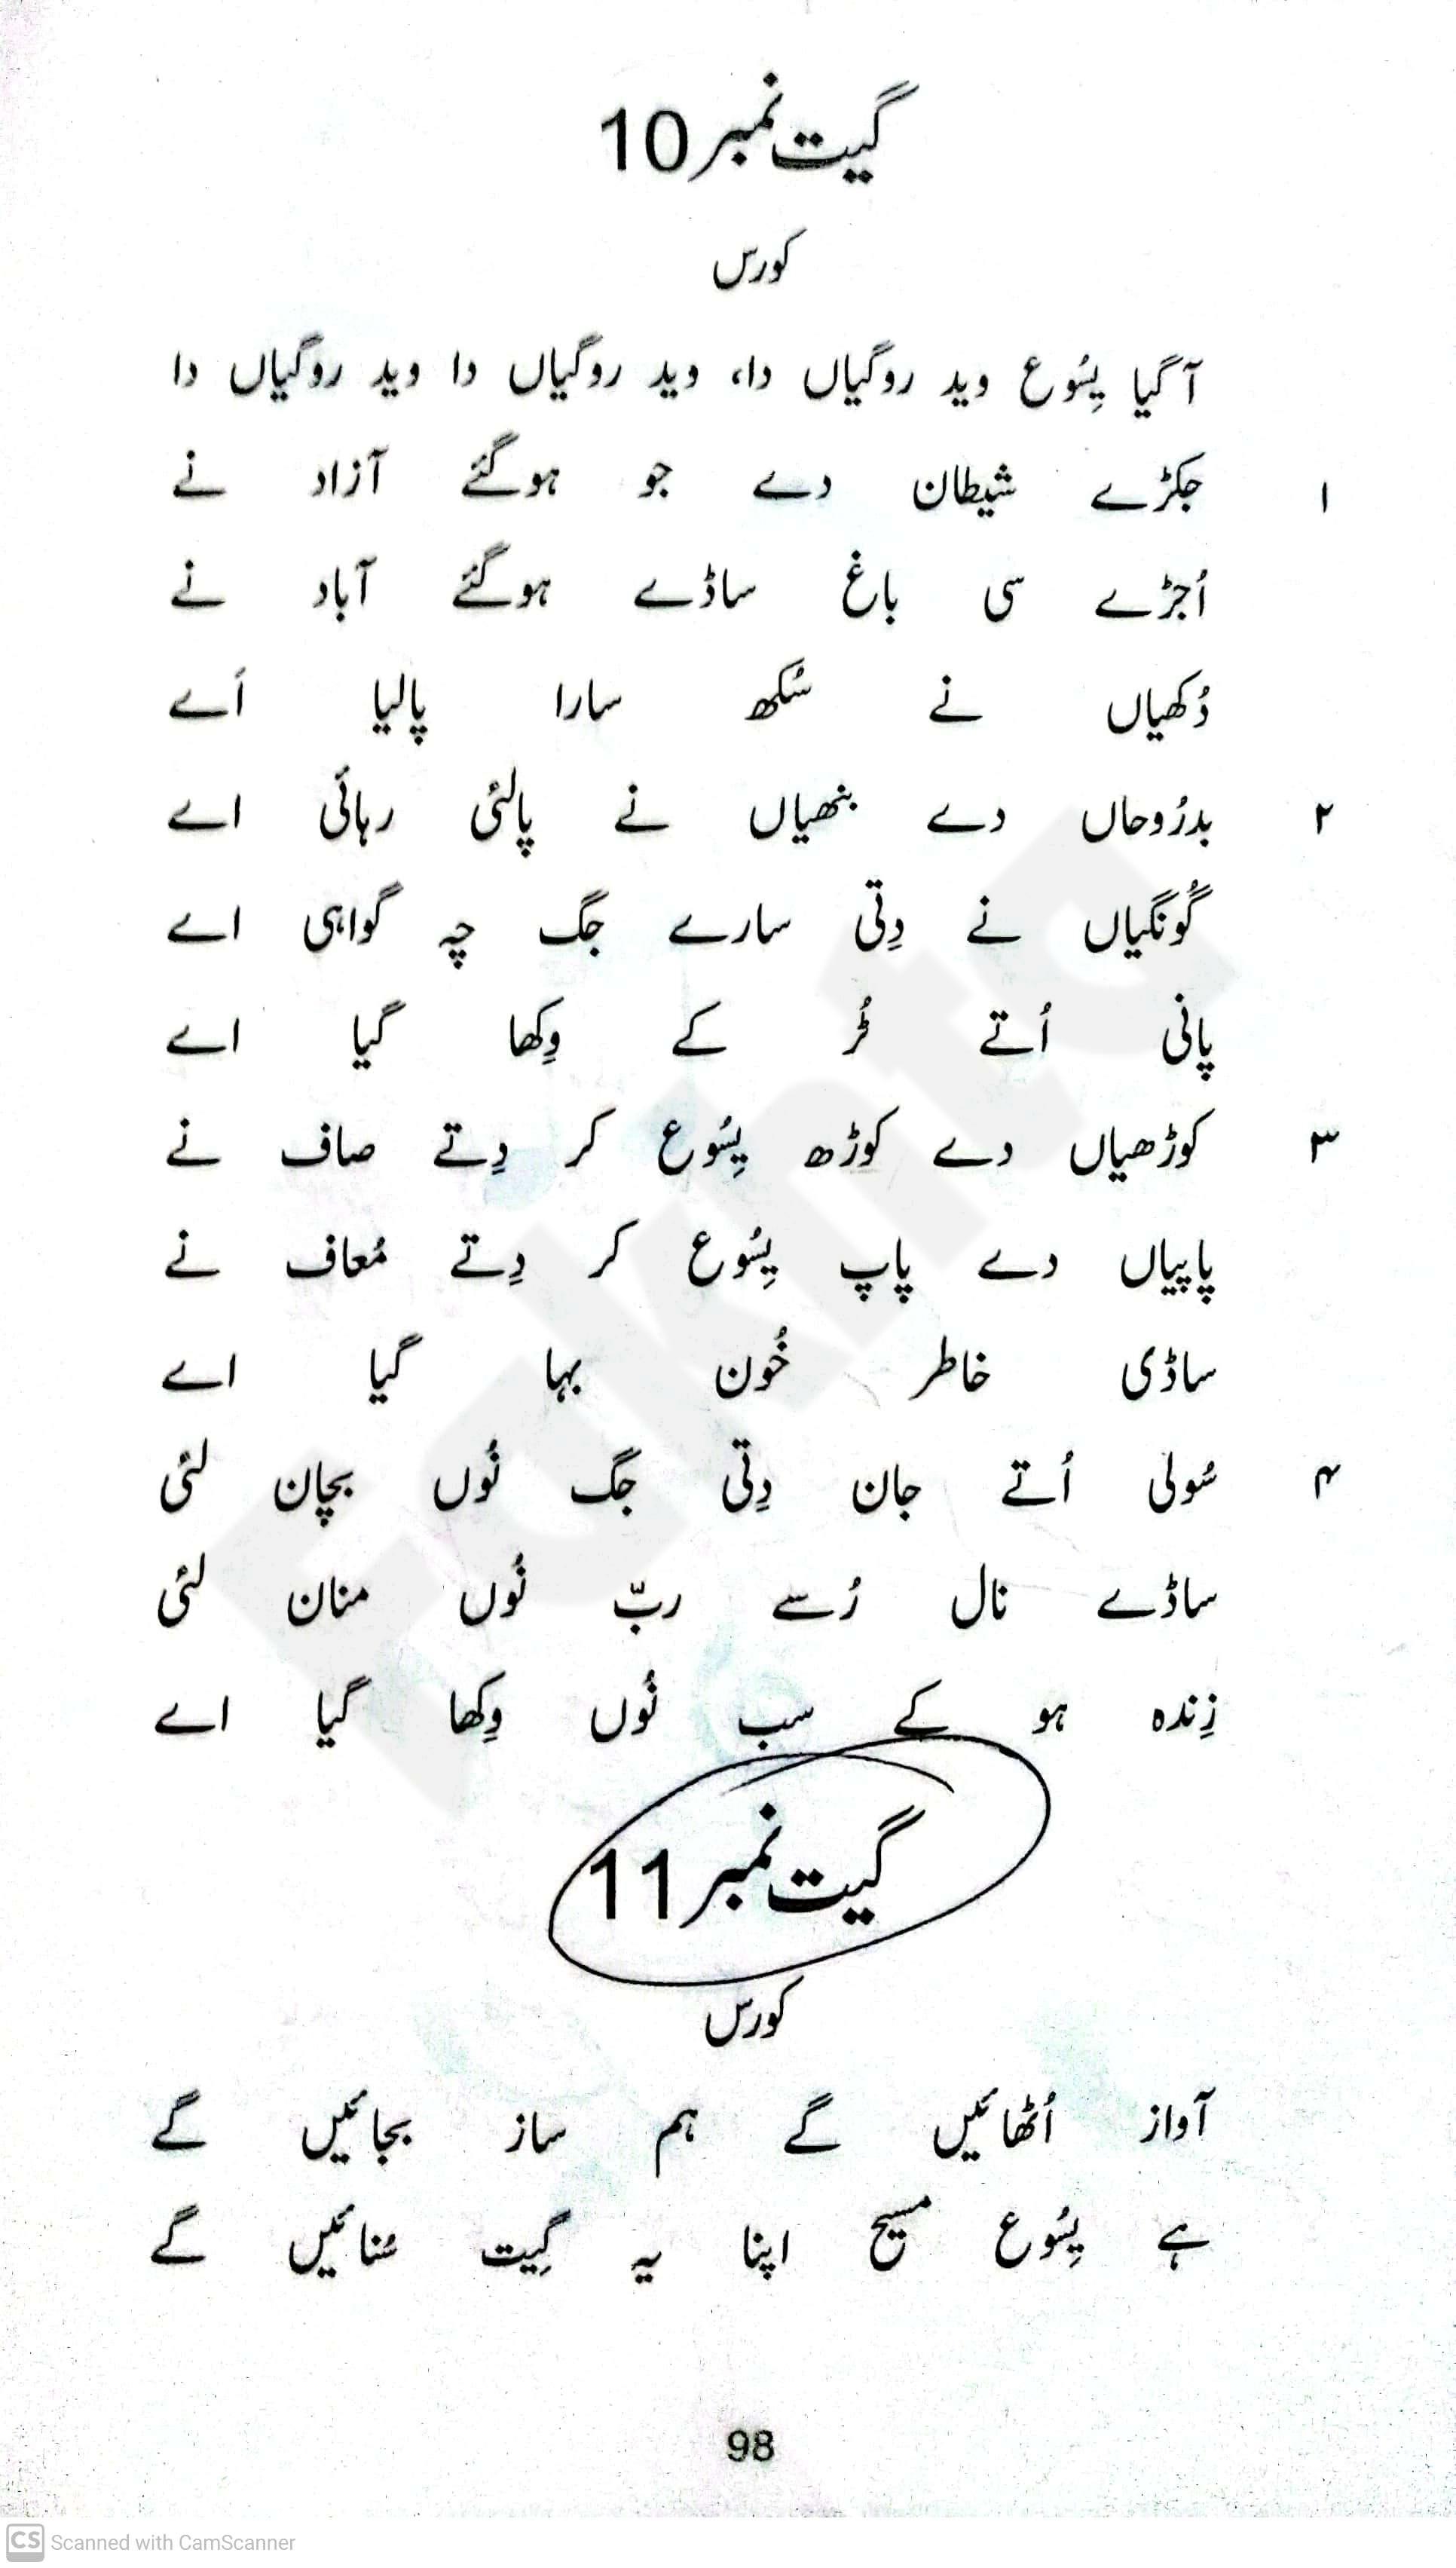 گیت نمبر 10
کورس
آ گیا یِسُوع وید روگیاں دا، وید روگیاں دا وید روگیاں دا
۱ جکڑے شیطان دے جو ہوگئے آزاد نے
اُجڑے سی باغ ساڈے ہوگئے آباد نے
دُکھیاں نے سُکھ سارا پالیا اَے
۲ بدرُوحاں دے بنھیاں نے پالئی رہائی اے
گُونگیاں نے دِتی سارے جگ چہ گواہی اے
پانی اُتے ٹُر کے وِکھا گیا اے
۳ کوڑھیاں دے کوڑھ یِسُوع کر دِتے صاف نے
پاپیاں دے پاپ یِسُوع کر دِتے مُعاف نے
ساڈی خاطر خُون بہا گیا اے
۴ سُولی اُتے جان دِتی جگ نُوں بچان لئی
ساڈے نال رُسے ربّ نُوں منان لئی
زِندہ ہو کے سب نُوں وِکھا گیا اے
گیت نمبر 11
کورس
آواز اُٹھائیں گے ہم ساز بجائیں گے
ہے یِسُوع مسیح اپنا یہ گِیت سُنائیں گے
98
CS Scanned with CamScanner
Fakhta